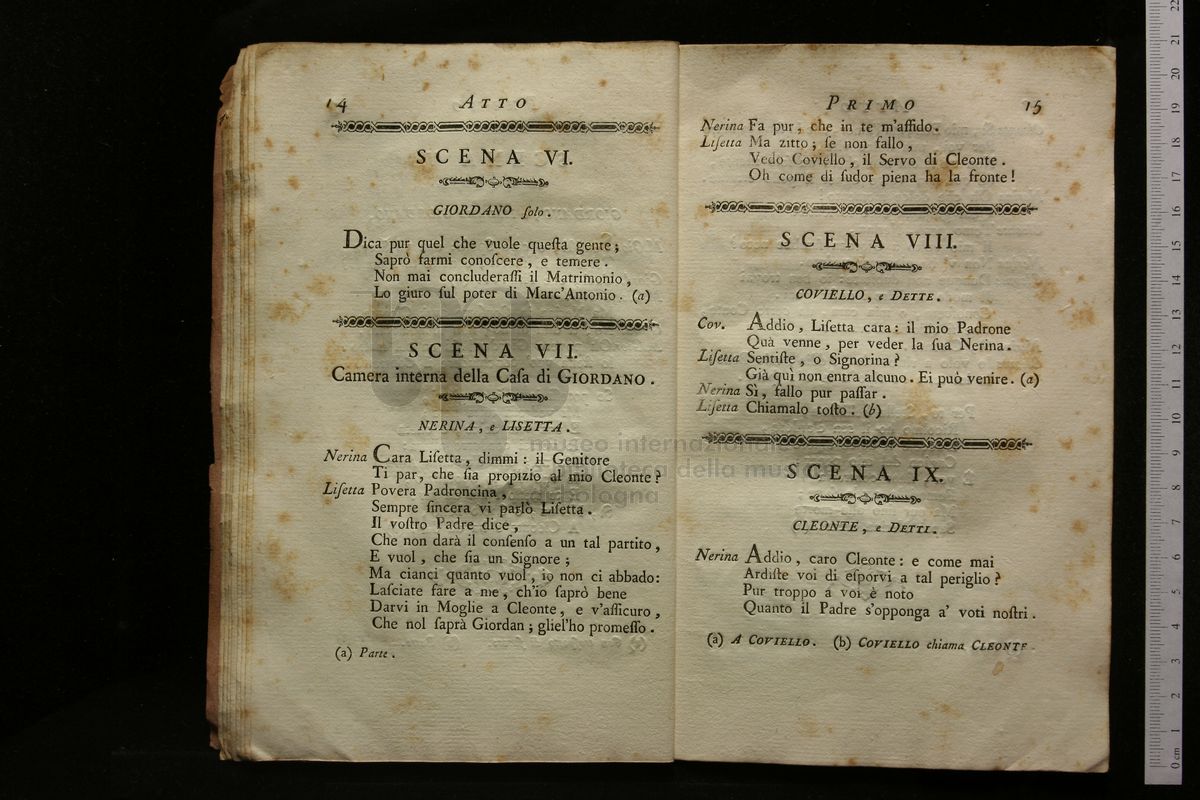 14 ATTO
SCENA VI.
GIORDANO ſolo.
Dica pur quel che vuole queſta gente;
Saprò farmi conoſcere, e temere.
Non mai concluderaſſi il Matrimonio,
Lo giuro ſul poter di Marc'Antonio. (a)
SCENA VII.
Camera interna della Caſa di GIORDANO.
NERINA, e LISETTA.
Nerina Cara Liſetta, dimmi: il Genitore
Ti par, che ſia propizio al mio Cleonte?
Liſetta Povera Padroncina,
Sempre ſincera vi parlò Liſetta.
Il voſtro Padre dice,
Che non darà il conſenſo a un tal partito,
E vuol, che ſia un Signore;
Ma cianci quanto vuol, io non ci abbado:
Laſciate fare a me, ch'io ſaprò bene
Darvi in Moglie a Cleonte, e v'aſſicuro,
Che nol ſaprà Giordan; gliel'ho promeſſo.
(a) Parte.
PRIMO 15
Nerina Fa pur, che in te m'affido.
Liſetta Ma zitto; ſe non fallo,
Vedo Coviello, il Servo di Cleonte.
Oh come di ſudor piena ha la fronte!
SCENA VIII.
COVIELLO, e DETTE.
Cov. Addio, Liſetta cara: il mio Padrone
Quà venne, per veder la ſua Nerina.
Liſetta Sentiſte, o Signorina?
Già quì non entra alcuno. Ei può venire. (a)
Nerina Sì, fallo pur paſſar.
Liſetta Chiamalo toſto. (b)
SCENA IX.
CLEONTE, e DETTI.
Nerina Addio, caro Cleonte: e come mai
Ardiſte voi di eſporvi a tal periglio?
Pur troppo a voi è noto
Quanto il Padre s'opponga a' voti noſtri.
(a) A COVIELLO. (b) COVIELLO chiama CLEONTE.
museo internazionale
biblioteca della musica
di bologna
0 cm 1 2 3 4 5 6 7 8 9 10 11 12 13 14 15 16 17 18 19 20 21 22